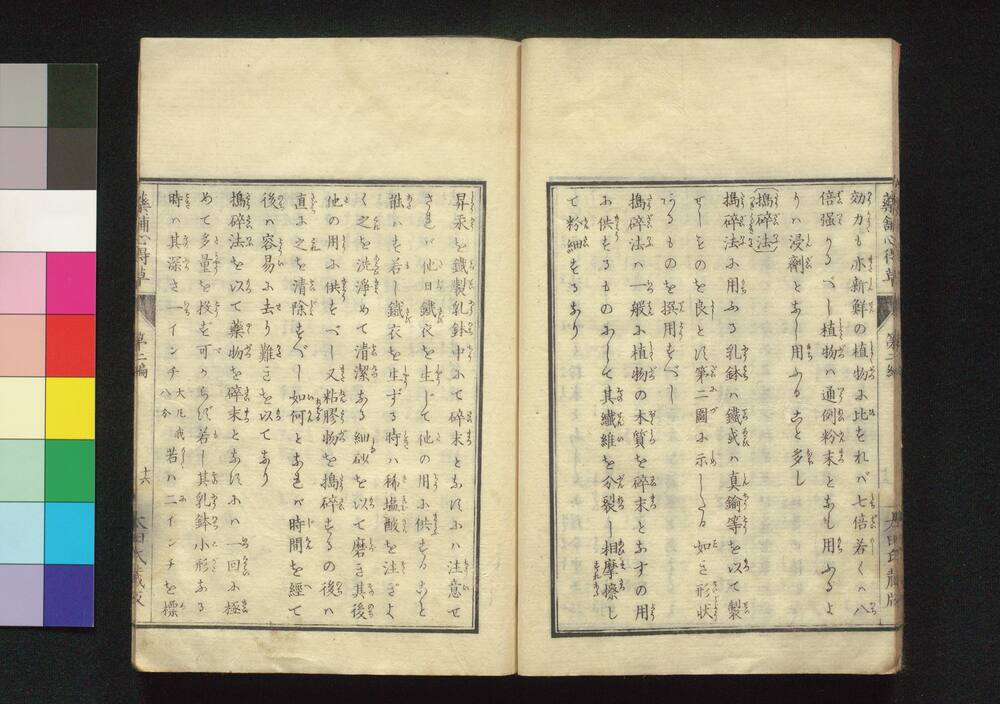 効力も亦新鮮の植物に比をれバ七倍若くハ八
倍强なるべし植物ハ通例粉末となし用ふるよ
りハ浸劑となし用ふること多し
(搗碎法)
搗碎法に用ふる乳鉢ハ鐵或ハ真鍮等を以て製
せしものを良とす第二圖に示したる如き形狀
なるものを撰用すべし
搗碎法ハ一般に植物の木質を碎末となすの用
に供するものにして其纖維を分裂し相摩擦し
て粉細するなり
昇汞を鐵製乳鉢中にて碎末となすにハ注意せ
ざれバ他日鐵衣を生じて他の用に供すること
能ハず若し鐵衣を生ずる時ハ稀塩酸を注ぎよ
く之を洗淨めて清潔なる細砂を以て磨き其後
他の用に供すべし又粘膠物を搗碎するの後ハ
直に之を清除すべし如何となれバ時間を經て
後ハ容易に去り難きを以てなり
搗碎法を以て藥物を碎末となすにハ一回に極
めて多量を投ず可からず若し其乳鉢小形なる
時ハ其深さ一インチ大凡我八分若ハ二インチを標
藥舗心得草 第二編 十六